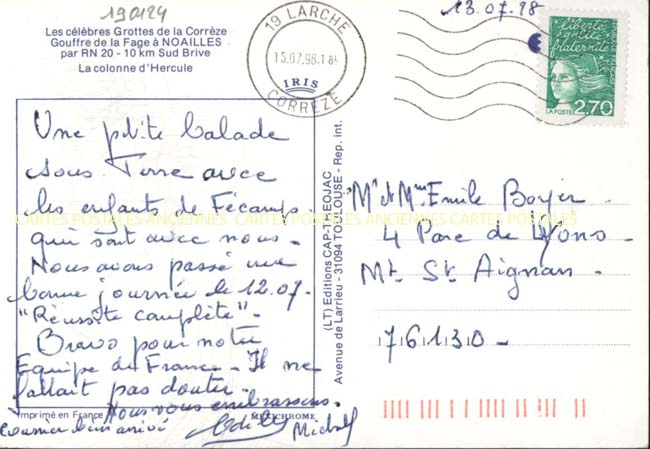 190124
Les célèbres Grottes de la Corrèze
Gouffre de la Fage à NOAILLES
par RN 20 - 10 km Sud Brive
La colonne d'Hercule
19 LARCHE
15.07.98.18H
IRIS
CORREZE
13.07.98
liberté
égalité
fraternité
LA POSTE
2,70
Une p'tite balade
sous Terre avec
les enfants de Fécamp.
qui sont avec nous -
Nous avons passé une
bonne journée le 12.07-
"Réussite complète" -
Bravo pour notre
Equipe de France - Il ne
fallait pas douter -
Nous vous embrassons.
courrier bien arrivé
Odile Michel
Imprimé en France
MEXICHROME
(LT) Editions CAP-THEOJAC
Avenue de Larrieu - 31094 TOULOUSE - Rep. int.
Mr et Mme Emile Boyer
4 Parc de Lyons -
Mt St Aignan -
76130 -
CARTES POSTALES ANCIENNES CARTES POSTALES ANCIENNES CARTES POSTALES